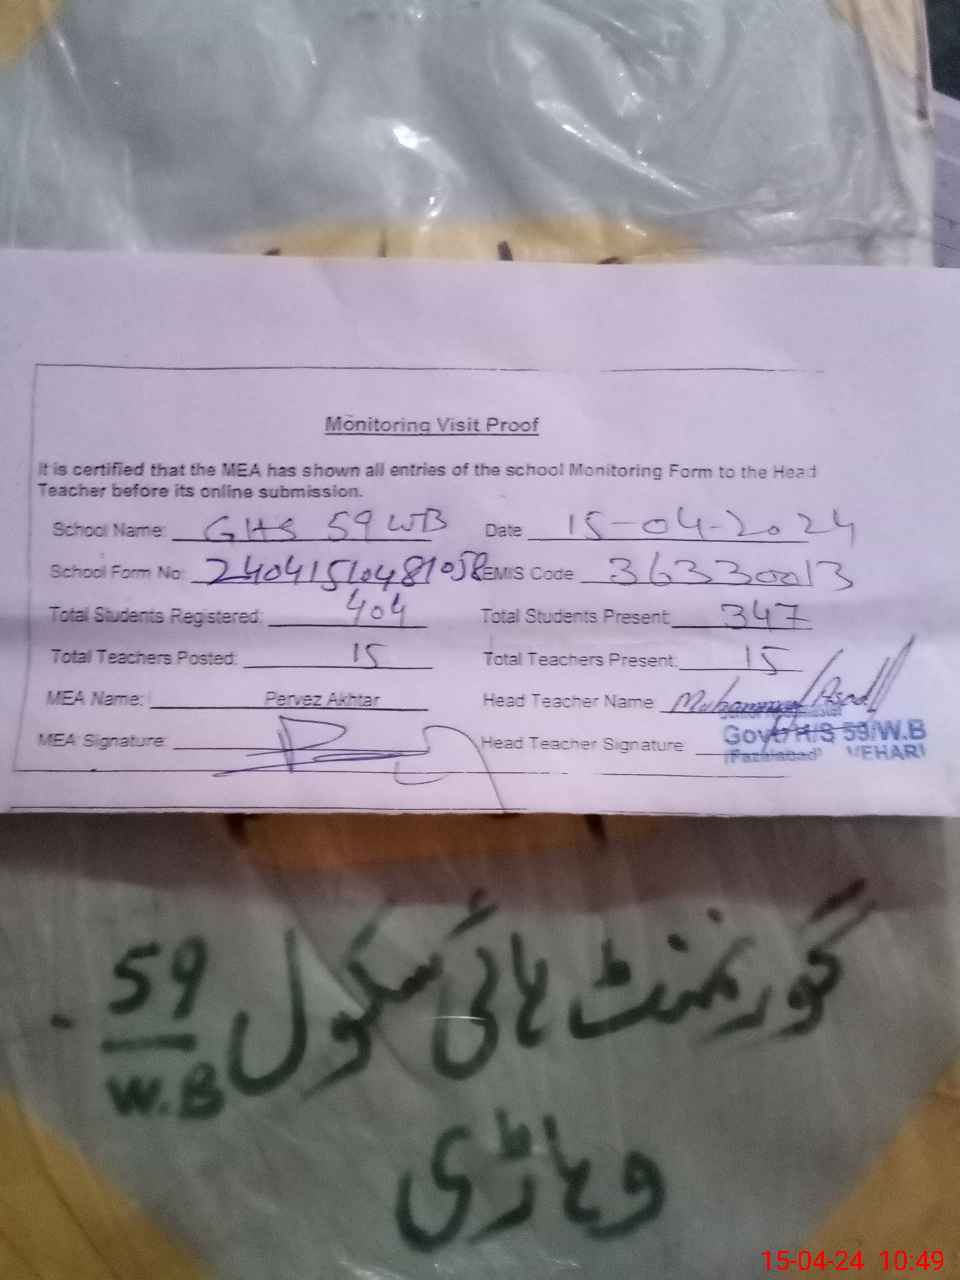 Monitoring Visit Proof
It is certified that the MEA has shown all entries of the school Monitoring Form to the Head
Teacher before its online submission.
School Name: GHS 59 WB Date 15-04-2024
School Form No: 24041510481058 EMIS Code 36330013
Total Students Registered: 404 Total Students Present: 347
Total Teachers Posted: 15 Total Teachers Present: 15
MEA Name: Pervez Akhtar Head Teacher Name Muhammad Asad
MEA Signature: Head Teacher Signature
Govt H/S 59/W.B
(Fazalabad) VEHARI
گورنمنٹ ہائی سکول 59
W.B
وہاڑی
15-04-24 10:49